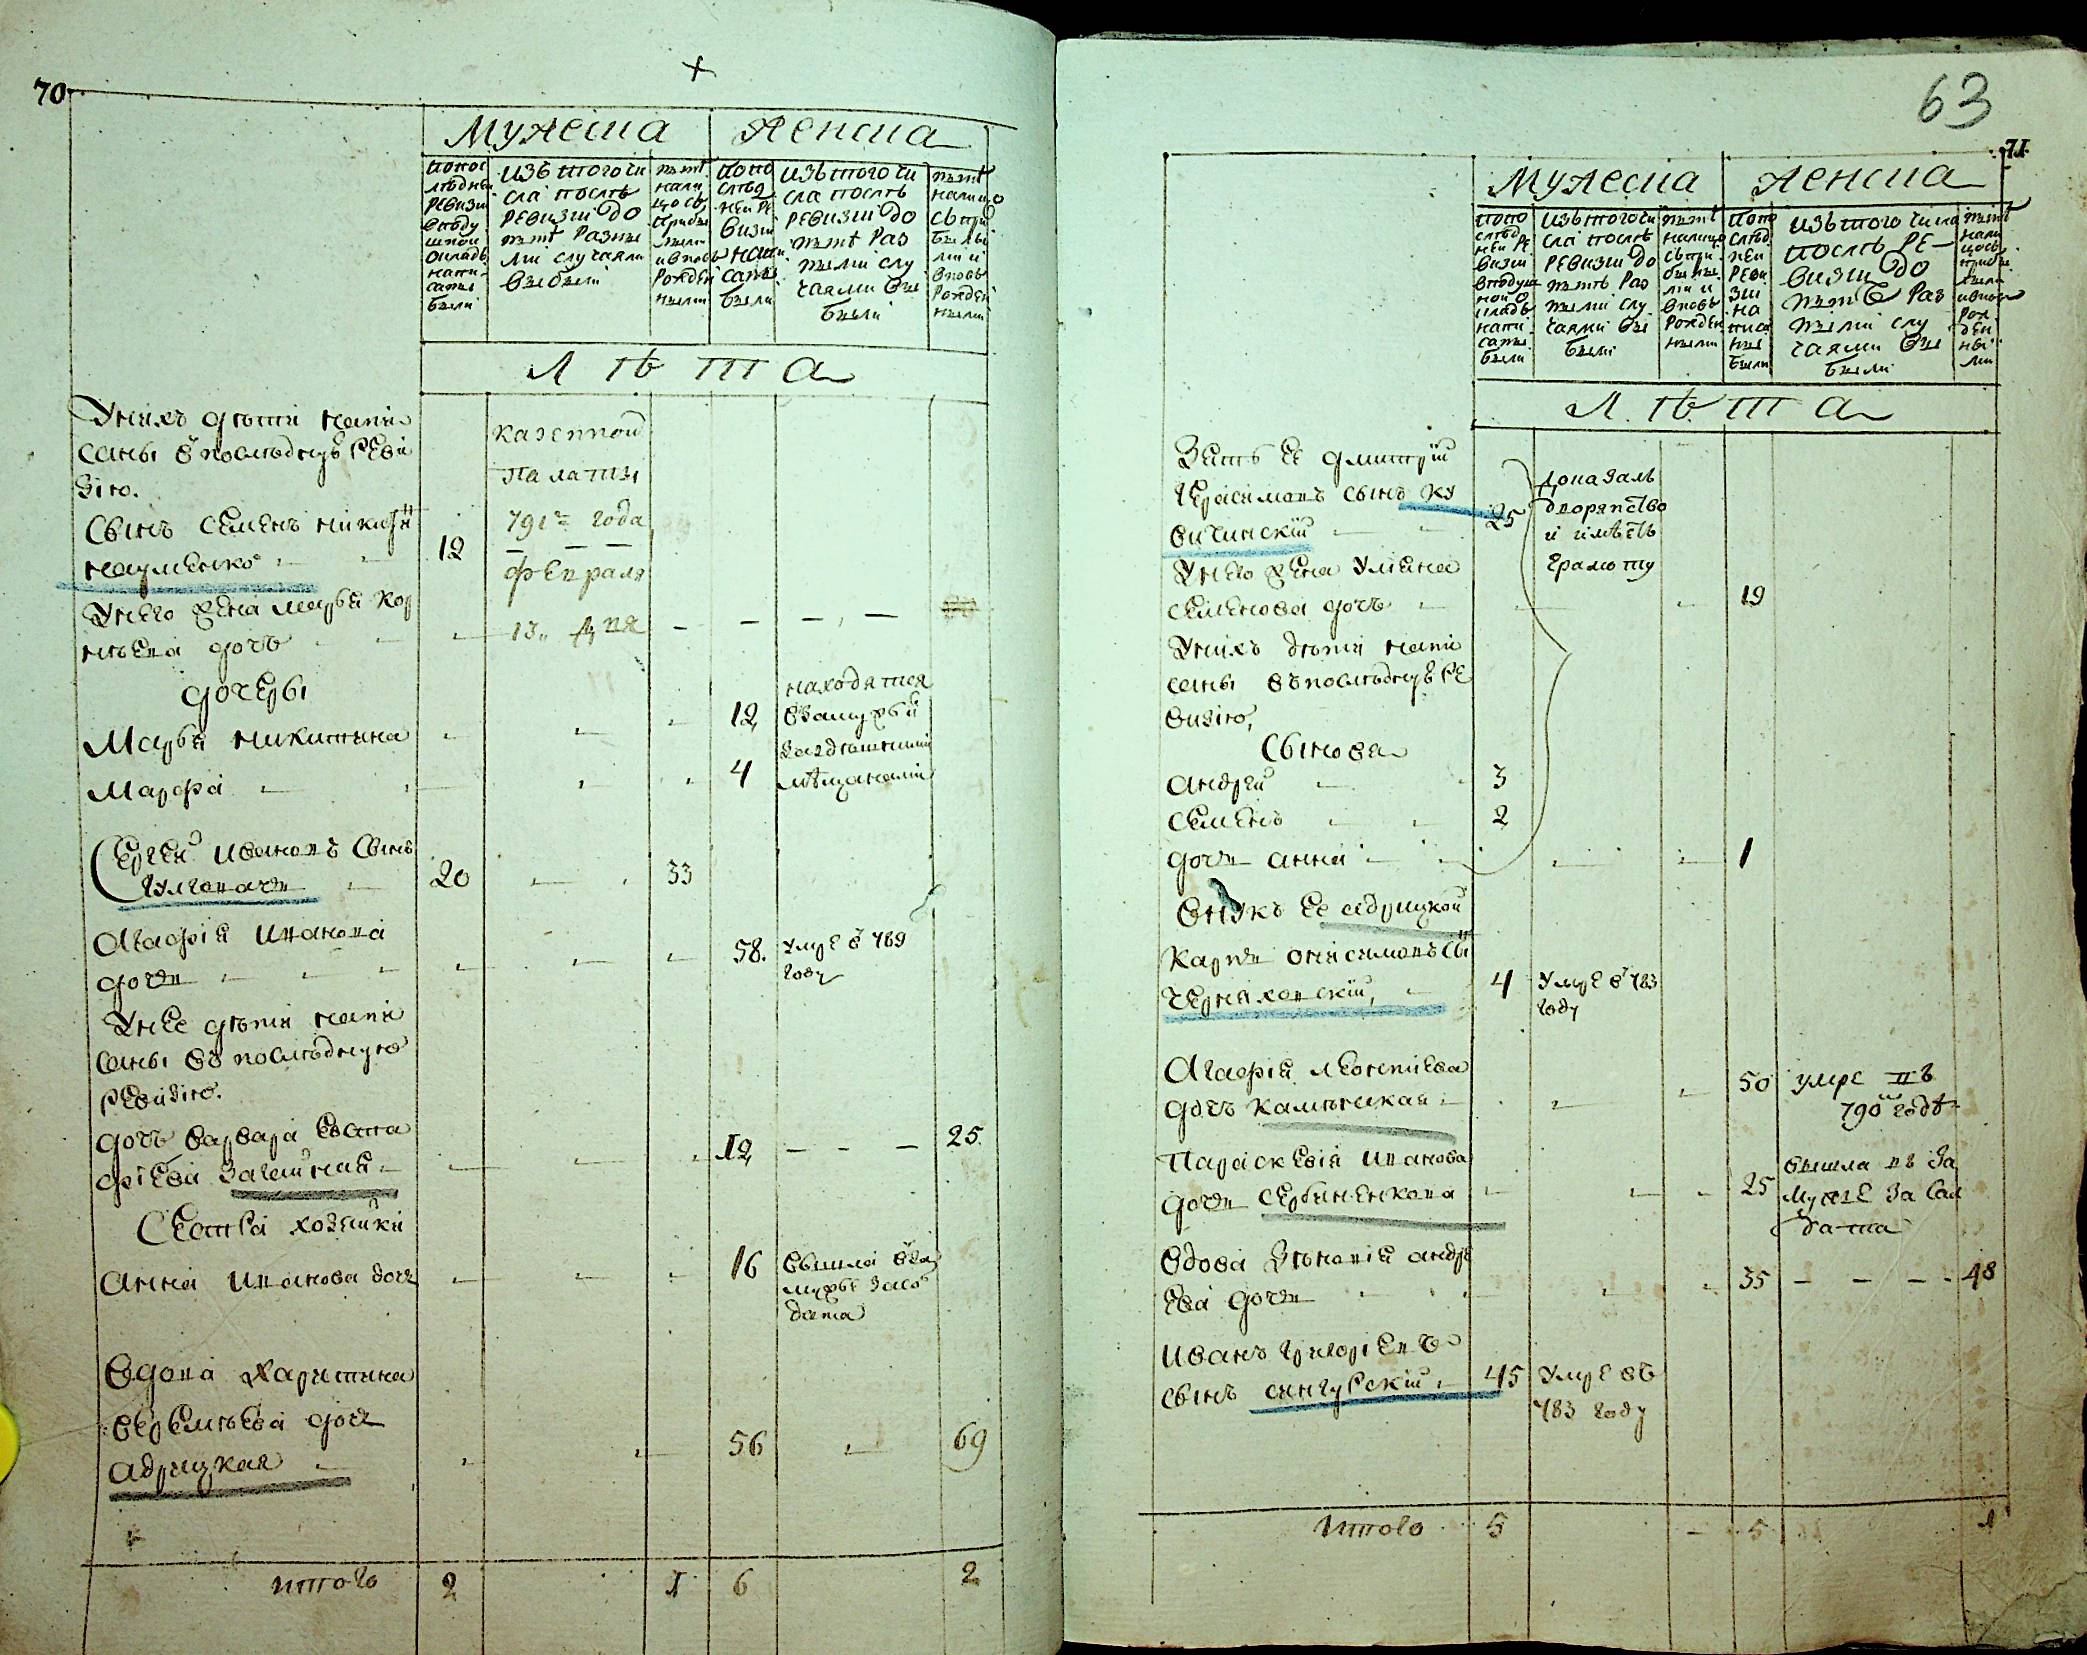 70
Мужеска
Женска
по пос
лѣдней
ревизіи
в поду
шной
окладъ
напи
саны
были
изъ того чи
сла послѣ
ревизіи до
нынѣ разны
ми случаями
выбыли
нынѣ
нали
цо съ
прибы
лыми
и вновь
рожден
ными
по по
слѣд
ней ре
визіи
напи
саны
были
изъ того чи
сла послѣ
ревизіи до
нынѣ раз
ными слу
чаями вы
были
нынѣ
налицо
съ при
былы
ми и
вновь
рожден
ными
Лѣта
У нихъ дѣти напи
саны в последную реви
зію.
Сынъ Семенъ Никитинъ
Науменко
12
казенной
палаты
791 года
февраля
13 дня
У него жена Марья Кор
нѣева дочь
дочеры
Марья Никитина
12
находятся
в замужьи
за здешними
мѣщанами
Марфа
4
Сергей Ивановъ сынъ
20
33
Агафія Иванова
дочь
58.
умре в 789
году
У нее дѣти напи
саны въ последную
ревизію.
дочь Варвара Евста
фіева
12
25
Сестра хозяйки
Анна Иванова дочь
16
вышла в за
мужье за сол
дата
Вдова Харитина
Веремѣева дочь
Адрицкая
56
69
итого
2
1
6
2
63
71
Мужеска
Женска
по по
слѣд
ней ре
визіи
в подуш
ной о
кладъ
напи
саны
были
изъ того чи
сла послѣ
ревизіи до
нынѣ раз
ными слу
чаями вы
были
нынѣ
налицо
съ при
былы
ми и
вновь
рожден
ными
по по
слѣд
ней
реви
зіи
на
писа
ны
были
изъ того числа
послѣ ре
визіи до
нынѣ раз
ными слу
чаями вы
были
нынѣ
нали
цо съ
прибы
лыми
и вновь
рож
ден
ны
ми
Лѣта
Зять ее Дмитрій
Герасимовъ сынъ Ку
вичинскій
25
доказалъ
дворянство
и имѣетъ
грамоту
У него жена Уліана
Семенова дочь
19
У нихъ дѣти напи
саны въ последную ре
визію,
Сынова
Андрей
3
Семенъ
2
дочь Анна
1
Внукъ ее Адрицкой
Карпъ Онисимовъ сы
Черняховскій,
4
умре в 783
году
Агафія Леонтіева
дочь
50
умре въ
790 годѣ
Параскевія Иванова
дочь Сербиненкова
25
вышла въ за
мужье за сол
дата
Вдова Зѣновія Андре
ева дочь
35
48
Иванъ Григоріевъ
сынъ Сангурскій
45
умре въ
783 году
итого
5
5
1